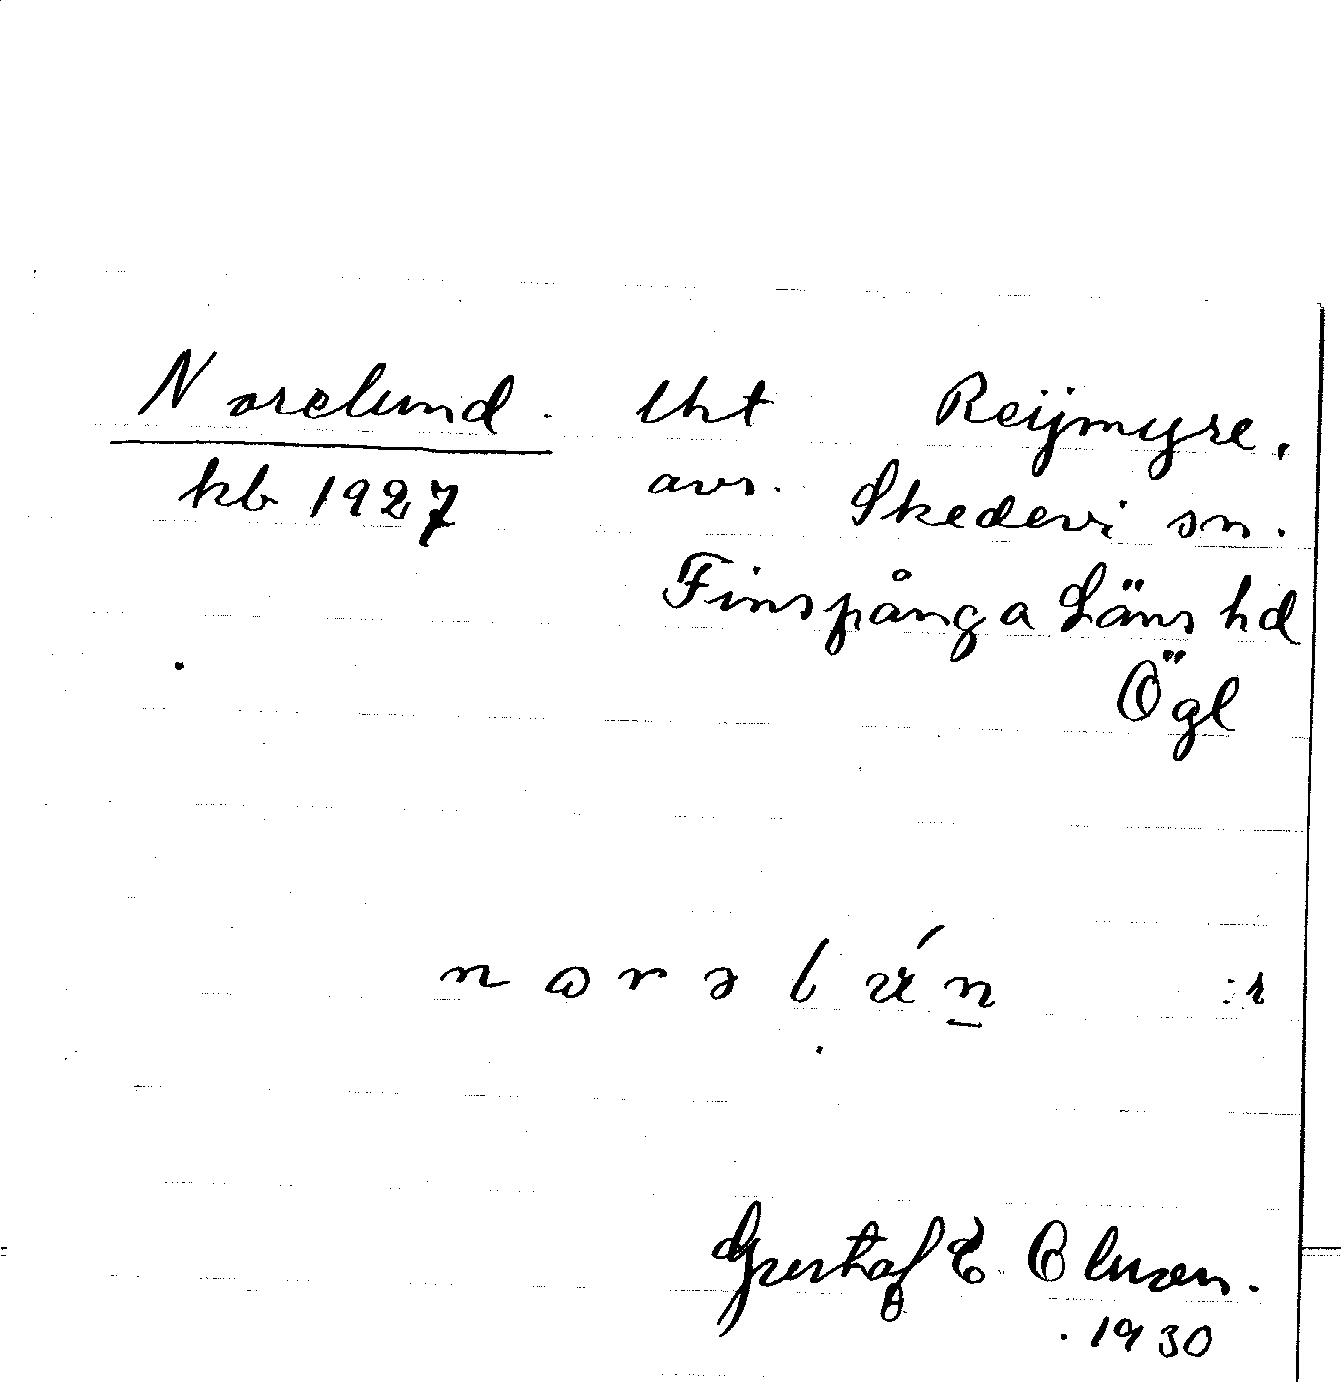 Norelund. lht Reijmyre.
kb 1927 avs. Skedevi sn.
Finspånga Läns hd
Ögl
Gustaf E Olsson.
1930